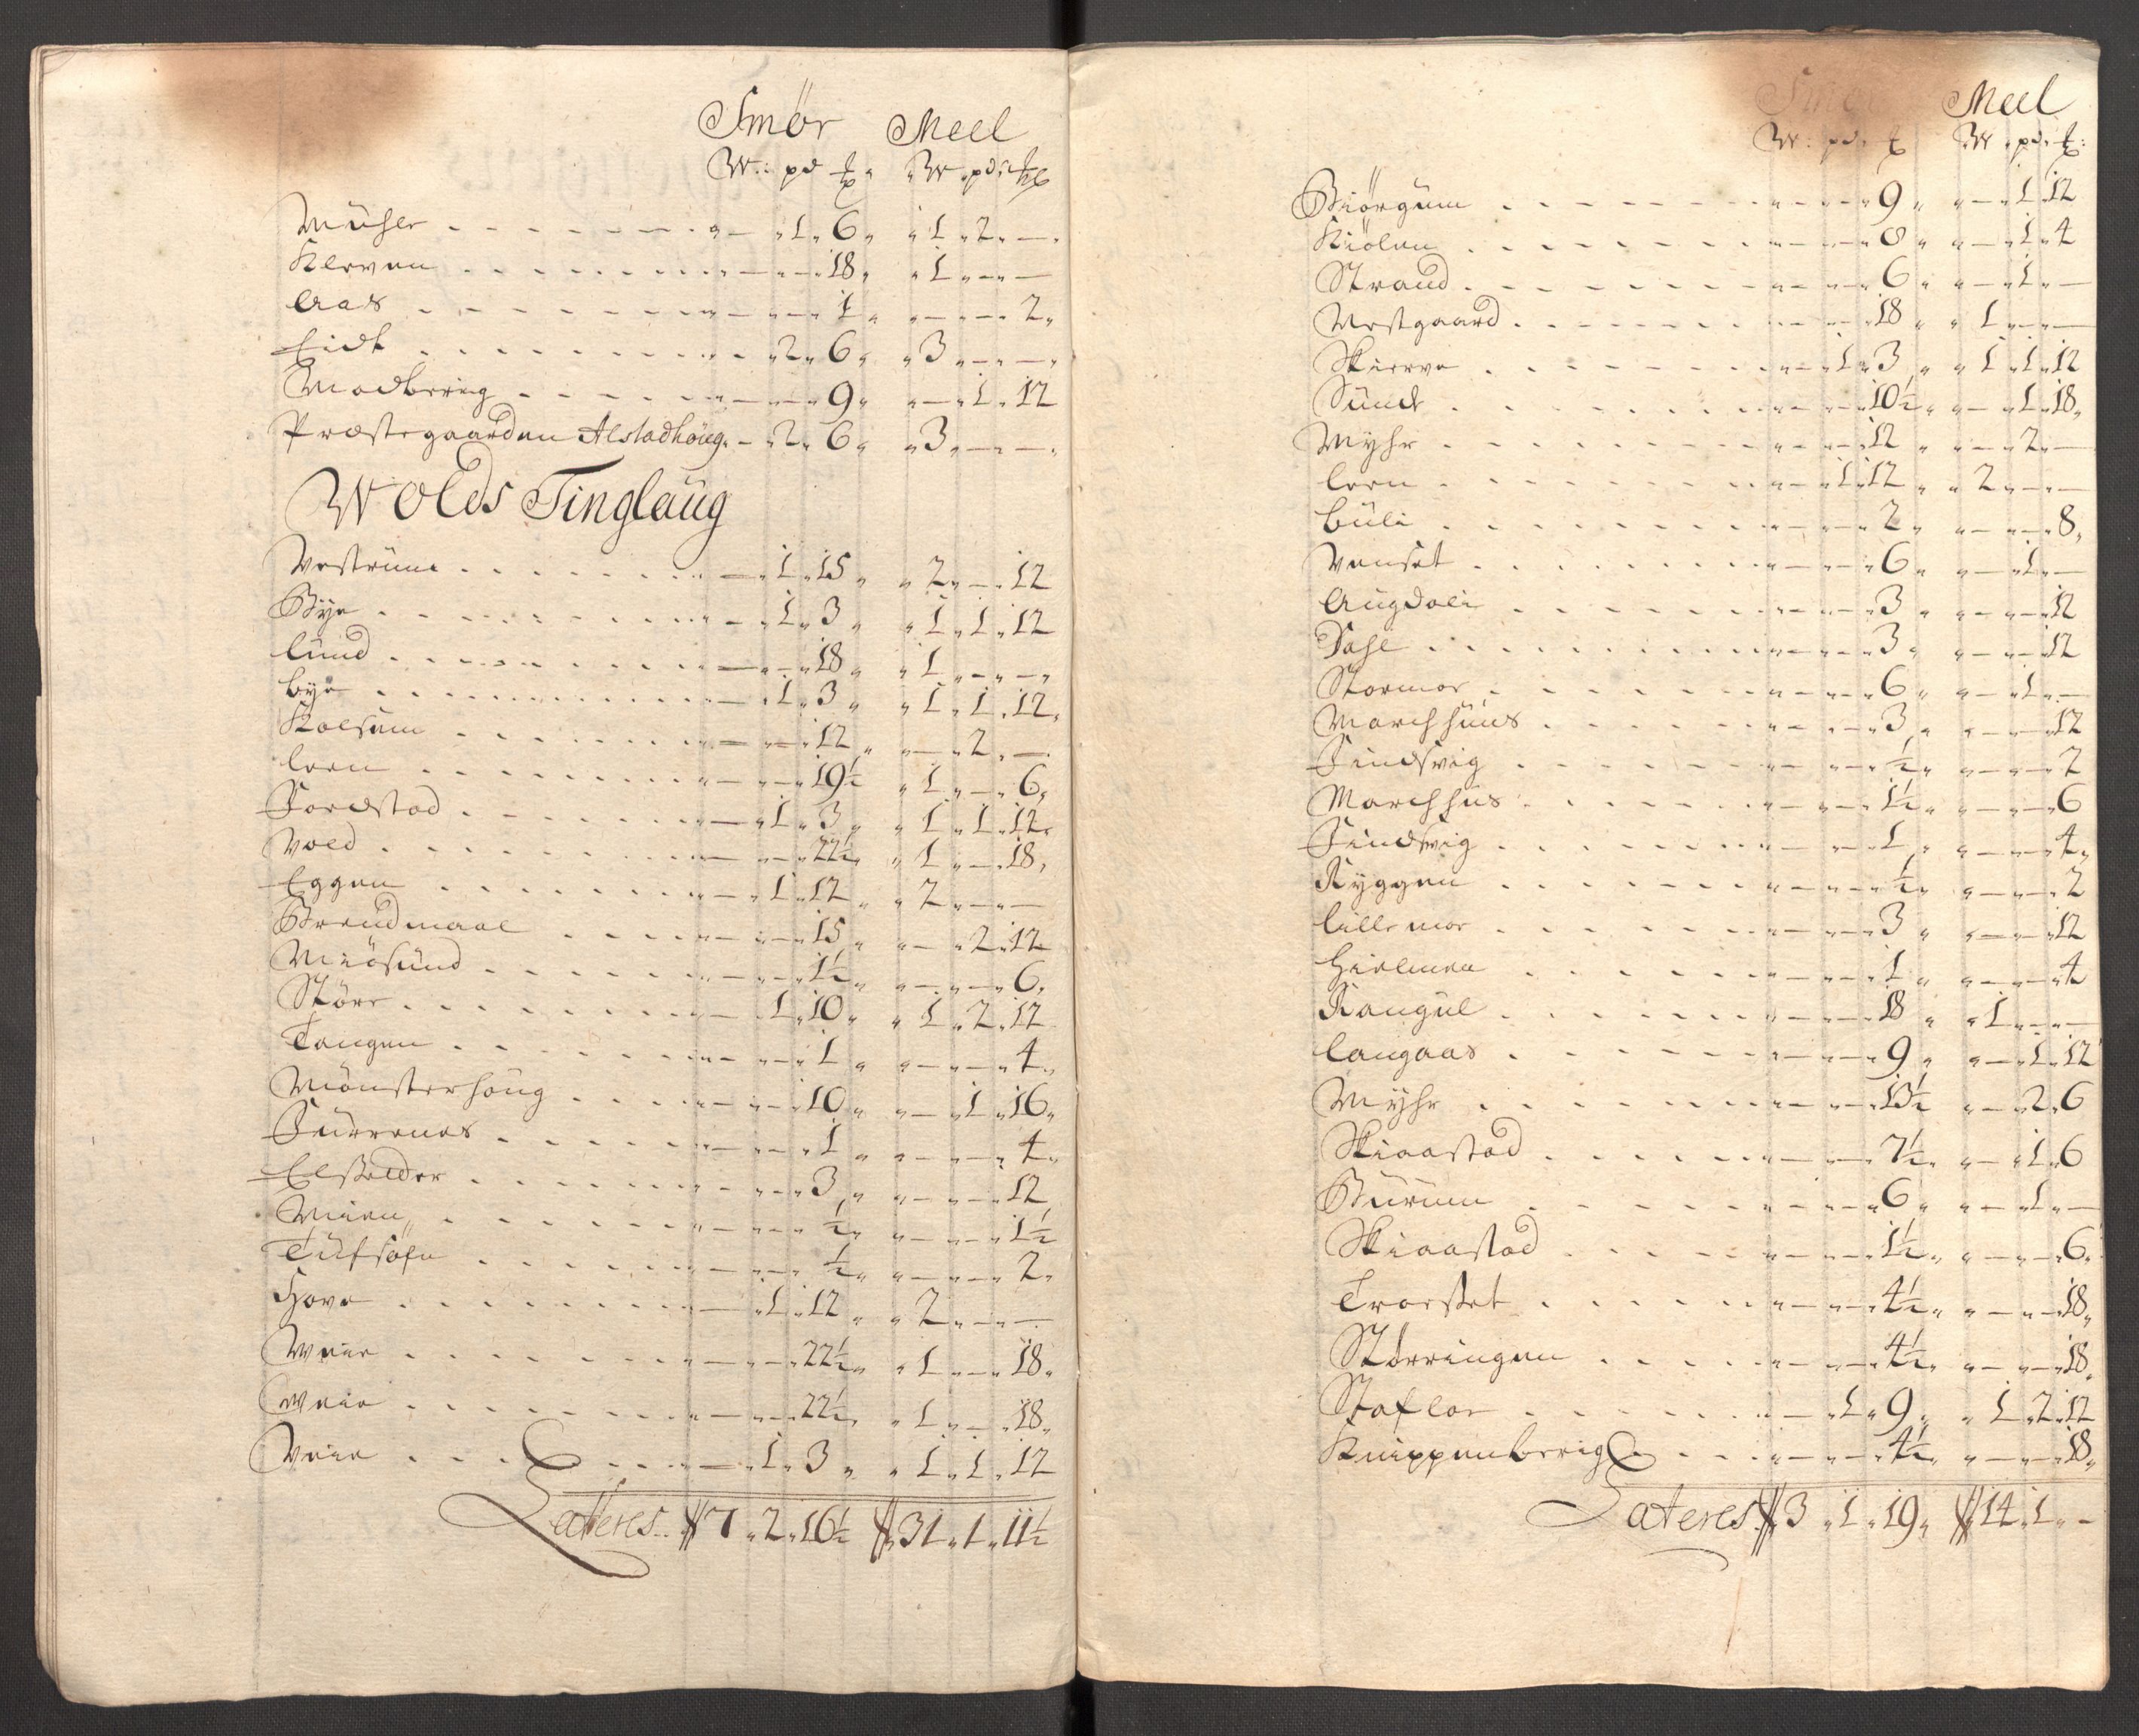 Smör Meel
W: pd ℔ W pd ℔
Mühle - 1 6 1 2 -
Kleven - - 18 1 - -
Aas - - 1 - - 2
Eidt - 2 6 3 - -
Modberrig - - 9 - 1 12
Præstegaarden Alstadhoug - 2 6 3 - -
Wolds Tinglaug
Vestrum - 1 15 2 - 12
Bye - 1 3 1 1 12
Lund - - 18 1 - -
bye - 1 3 1 1 12
Kolsum - - 12 - 2 -
leen - - 19½ 1 - 6
Fordstad - 1 3 1 1 12
Vold - - 22½ 1 - 18
Eggen - 1 12 2 - -
Brendmaal - - 15 - 2 12
Miösund - - 1½ - - 6
Störe - 1 10 1 2 12
Tangen - - 1 - - 4
Mönsterhoug - - 10 - 1 16
Furrenes - - 1 - - 4
- - 3 - - 12
Mien - - ½ - - 1½
- - ½ - - 2
Hove - 1 12 2 - -
Weie - - 22½ 1 - 18
Weie - - 22½ 1 - 18
Veie - 1 3 1 1 12
Lateres 7 2 16½ 31 1 11½
Smör Meel
W: pd ℔ W pd ℔:
Biörgum - - 9 - 1 12
Kiölen - - 8 - 1 4
Strand - - 6 - 1 -
Vestgaard - - 18 1 - -
Skierve - 1 3 1 1 12
Sunde - - 10½ - 1 18
Myhr - - 12 - 2 -
leen - 1 12 2 - -
büli - - 2 - - 8
Venset - - 6 - 1 -
Augdali - - 3 - - 12
Dahl - - 3 - - 12
Stormoe - - 6 - 1 -
Marchhuus - - 3 - - 12
Findsvig - - ½ - - 2
Marchhus - - 1½ - - 6
Findsvig - - 1 - - 4
Ryggen - - ½ - - 2
lille moe - - 3 - - 12
Hielmen - - 1 - - 4
Rangul - - 18 1 - -
langaas - - 9 - 1 12
Myhr - - 13½ - 2 6
Skiaastad - - 7½ - 1 6
Burum - - 6 - 1 -
Skiaastad - - 1½ - - 6
Troeset - - 4½ - - 18
Störringen - - 4½ - - 18
Staflor - 1 9 1 2 12
Knippenberrig - - 4½ - - 18
Lateres 3 1 19 14 1 -